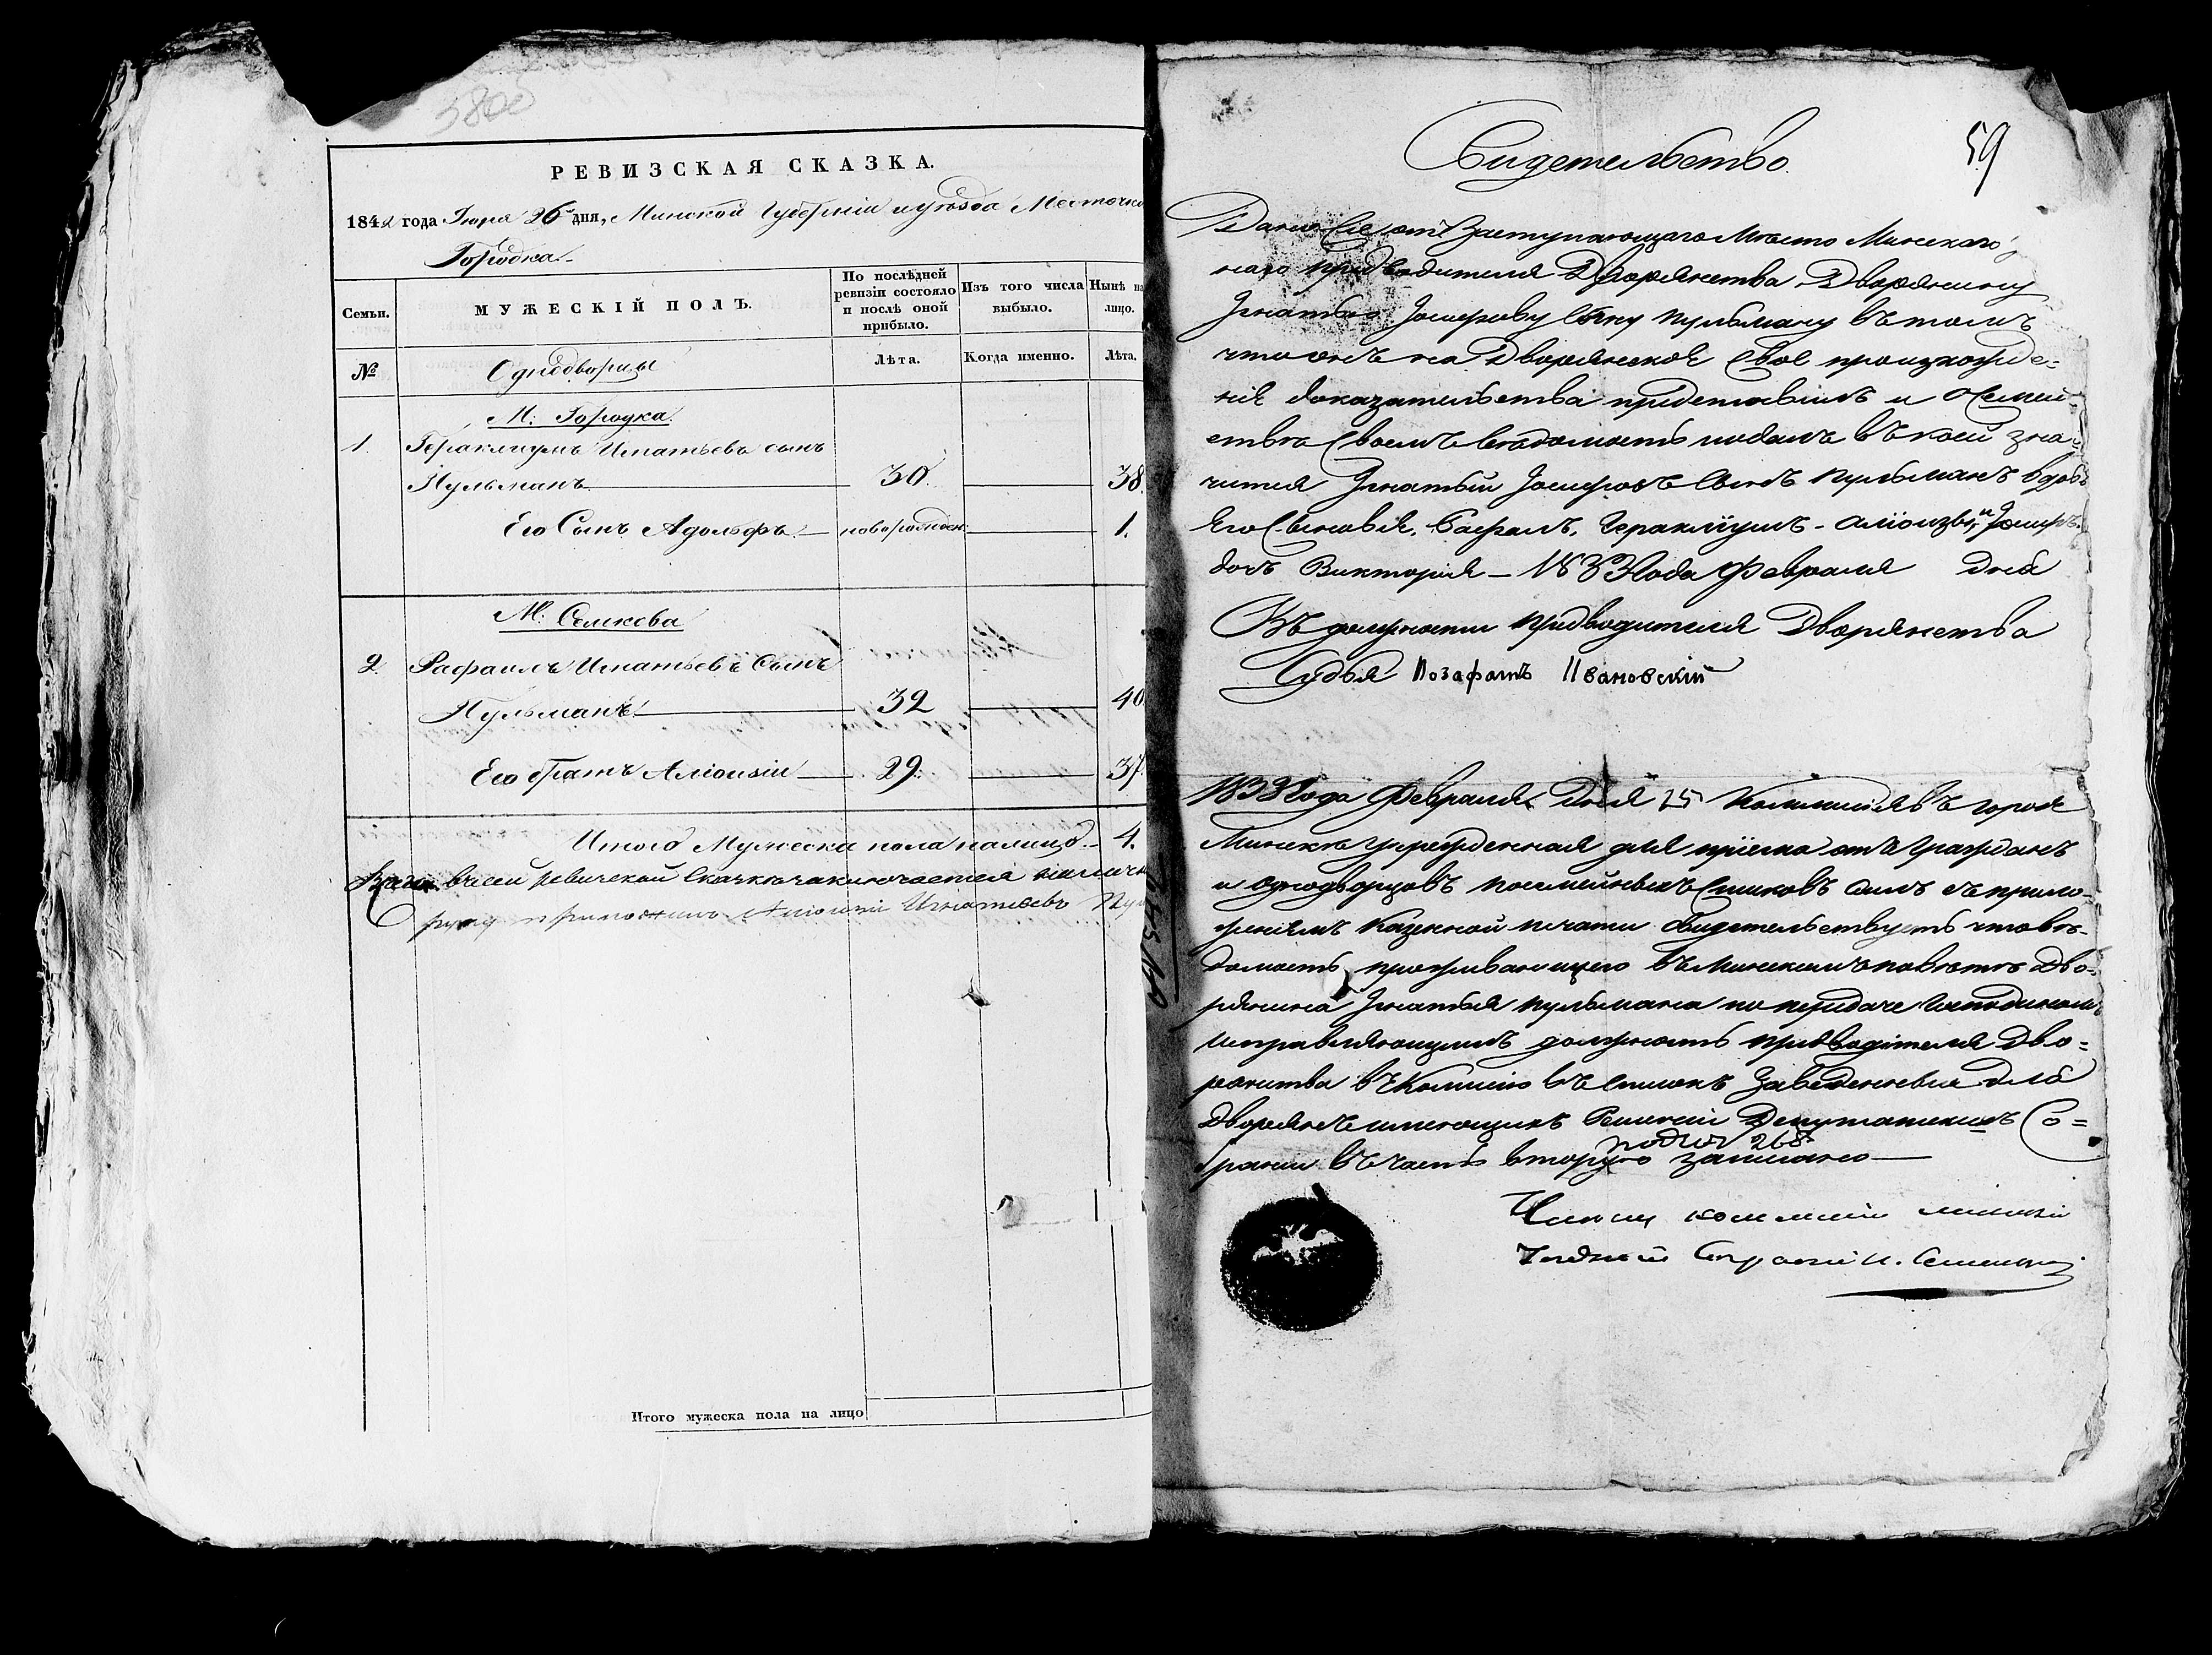 3800
РЕВИЗСКАЯ СКАЗКА.
1842 года Iюня 26 дня, Минской Губернiи и уѣзда Местечка
Городка
Семьи.
МУЖЕСКIЙ ПОЛЪ.
По послѣдней ревизiи состояло и послѣ оной прибыло.
Изъ того числа выбыло.
Нынѣ на лицо.
№
Однодворцы
Лѣта.
Когда именно.
Лѣта.
М: Городка
1. Гераклiумъ Игнатьевъ сынъ
Пульманъ 30. 38.
Его Сынъ Адольфъ новорожден: 1.
М: Семкова
2. Рафаилъ Игнатьевъ Сынъ
Пульманъ 32 40
Его братъ Алiоизiи 29. 37.
Итого Мужеска пола налицо 4.
в сеи ревизской Сказкѣ заключается
руку приложилъ Алiоизiи Игнатьевъ
Итого мужеска пола на лицо
59
Свидетельство.
Дано Сiе отъ Заступающаго Мѣсто Минскаго
наго предводителя Дворянства, Дворянину
Игнатью Iосифову Сыну Пульману въ томъ
что онъ на Дворянское Свое происхожде-
нiе доказательства представилъ и о Семей-
ствѣ Своемъ вѣдомость подалъ въ коей зна-
чится Игнатiй Iосифовъ Сынъ Пульманъ вдовъ
Его Сыновья, Рафалъ, Гераклiумъ - Алiоизы, и Iосифъ.
дочь Викторiя - 1833 Года Февраля дня
Въ должности предводителя Дворянства
Судья Iозафатъ Ивановскiй
1833 Года Февраля дня 25 Коммисiя въ городѣ
Минскѣ учрежденная для прiема отъ Гражданъ
и однодворцовъ посемейныхъ Списковъ Симъ съ прило-
женiемъ Казенной печати Свидетельствуетъ что вѣ-
домость проживающего въ Минскомъ повѣтѣ Дво-
рянина Игнатья Пульмана по передаче Господиномъ
исправляющимъ должность предводителя Дво=
рянства в Комисiю въ Списокъ Заведенные для
Дворянъ имеющихъ Решенiи Депутатскихъ Со=
под № 268
бранiи въ часть вторую записано
Членъ коммисiи